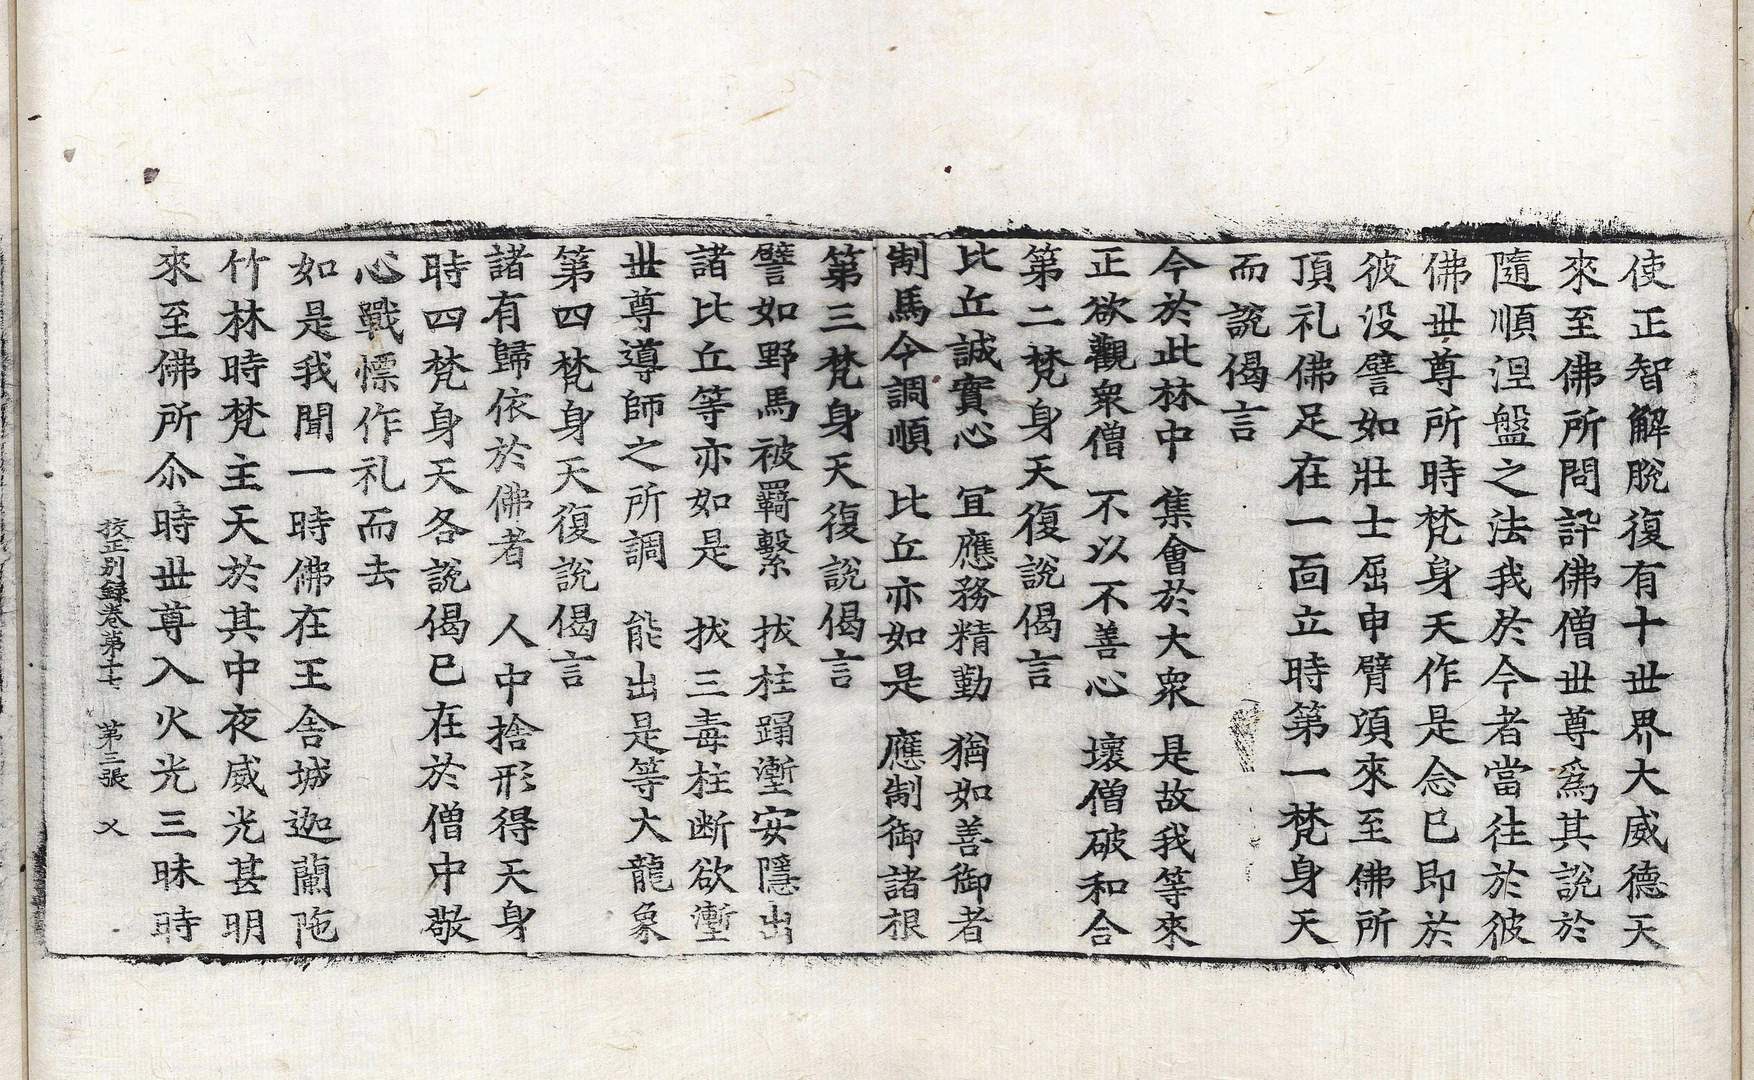 使正智解脫復有十世界大威德天
來至佛所問訊佛僧世尊爲其說於
隨順涅盤之法我於今者當往於彼
佛世尊所時梵身天作是念已即於
彼没譬如壯士屈申臂頃來至佛所
頂礼佛足在一面立時第一梵身天
而說偈言
今於此林中　集會於大衆　是故我等來
正欲觀衆僧　不以不善心　壞僧破和合
第二梵身天復說偈言
比丘誠實心　宜應務精勤　猶如善御者
制馬令調順　比丘亦如是　應制御諸根
第三梵身天復說偈言
譬如野馬被羇繫　拔柱蹋壍安隱出
諸比丘等亦如是　拔三毒柱断欲壍
世尊導師之所調　能出是等大龍象
第四梵身天復說偈言
諸有歸依於佛者　人中捨形得天身
時四梵身天各說偈已在於僧中敬
心戰慄作礼而去
如是我聞一時佛在王舍城迦蘭陁
竹林時梵主天於其中夜威光甚明
來至佛所尒時世尊入火光三昧時
挍正別録卷第十七　第三張　乂